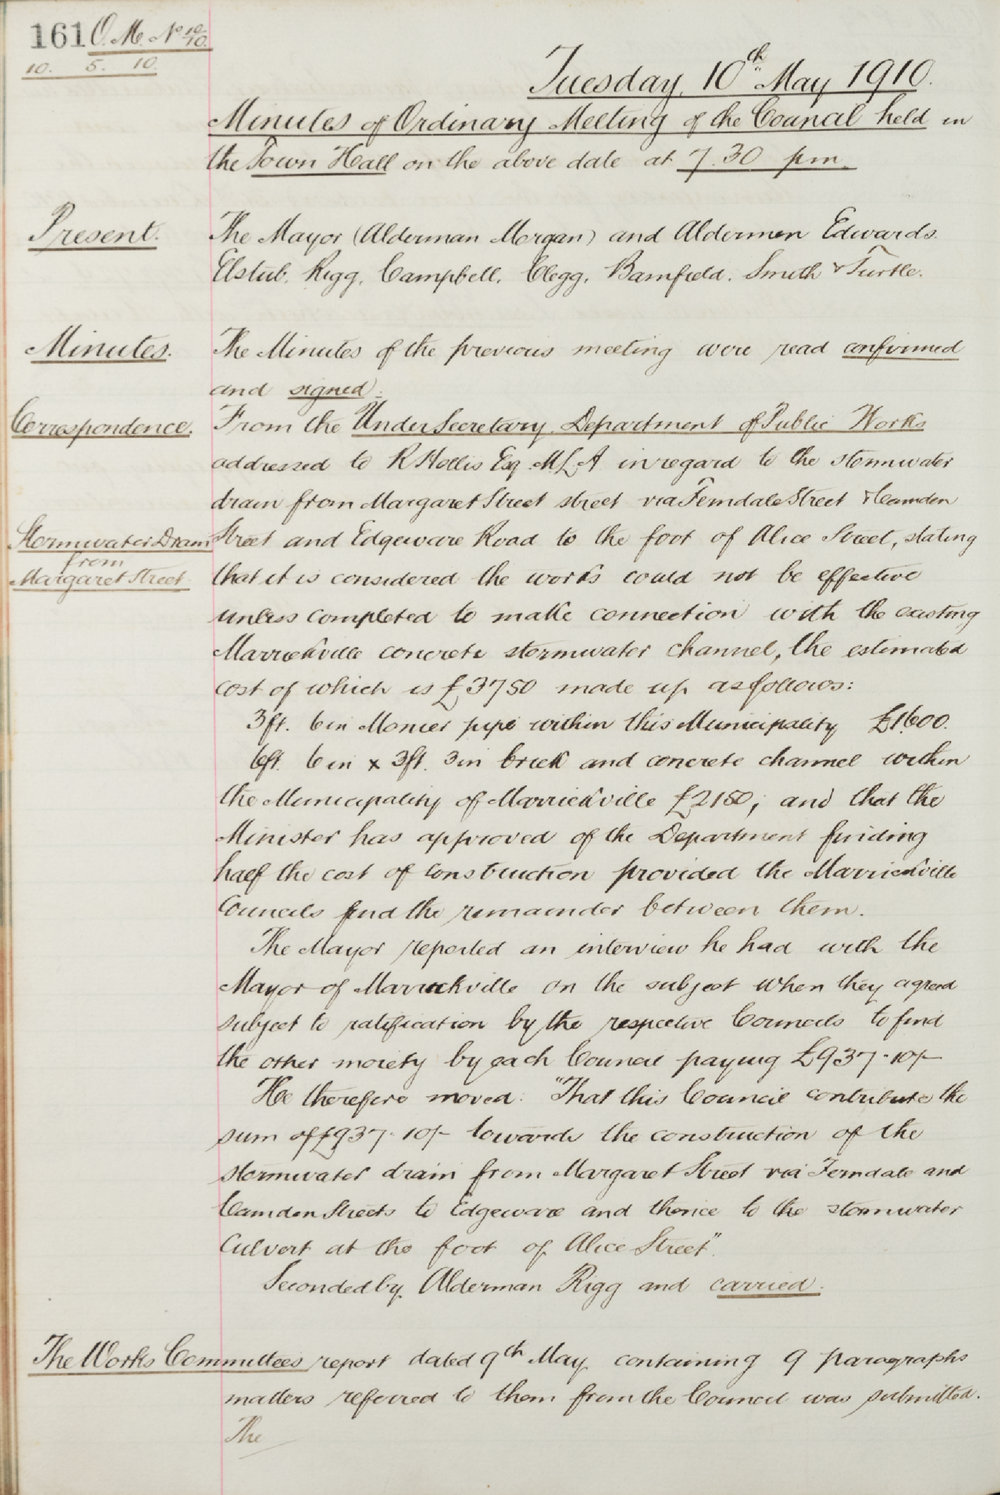 161 O. M. No 10/10.
10. 5. 10.
Tuesday, 10th May 1910.
Minutes of Ordinary Meeting of the Council held in
the Town Hall on the above date at 7.30 pm.
Present.
The Mayor (Alderman Morgan) and Aldermen Edwards.
Elstub. Rigg. Campbell. Clegg. Bamfield. Smith & Turtle.
Minutes.
The Minutes of the previous meeting were read confirmed
and signed.
Correspondence.
From the Under Secretary Department of Public Works
addressed to R Hollis Esq. M L A in regard to the stormwater
drain from Margaret Street street via Ferndale Street & Camden
Stormwater Drain
from
Margaret Street
Street and Edgeware Road to the foot of Alice Street, stating
that it is considered the works could not be effective
unless completed to make connection with the existing
Marrickville concrete stormwater channel, the estimated
cost of which is £3750 made up as follows:
3ft. 6in Monier pipe within this Municipality £1600.
6ft. 6in x 3ft. 3in brick and concrete channel within
the Municipality of Marrickville £2150; and that the
Minister has approved of the Department finding
half the cost of construction provided the Marrickville
Councils find the remainder between them.
The Mayor reported an interview he had with the
Mayor of Marrickville on the subject when they agreed
subject to ratification by the respective Councils to find
the other moiety by each Council paying £937.10/-
He therefore moved: "That this Council contribute the
sum of £937.10/- towards the construction of the
stormwater drain from Margaret Street via Ferndale and
Camden Streets to Edgeware and thence to the stormwater
Culvert at the foot of Alice Street".
Seconded by Alderman Rigg and carried.
The Works Committees report dated 9th May containing 9 paragraphs
matters referred to them from the Council was submitted.
The